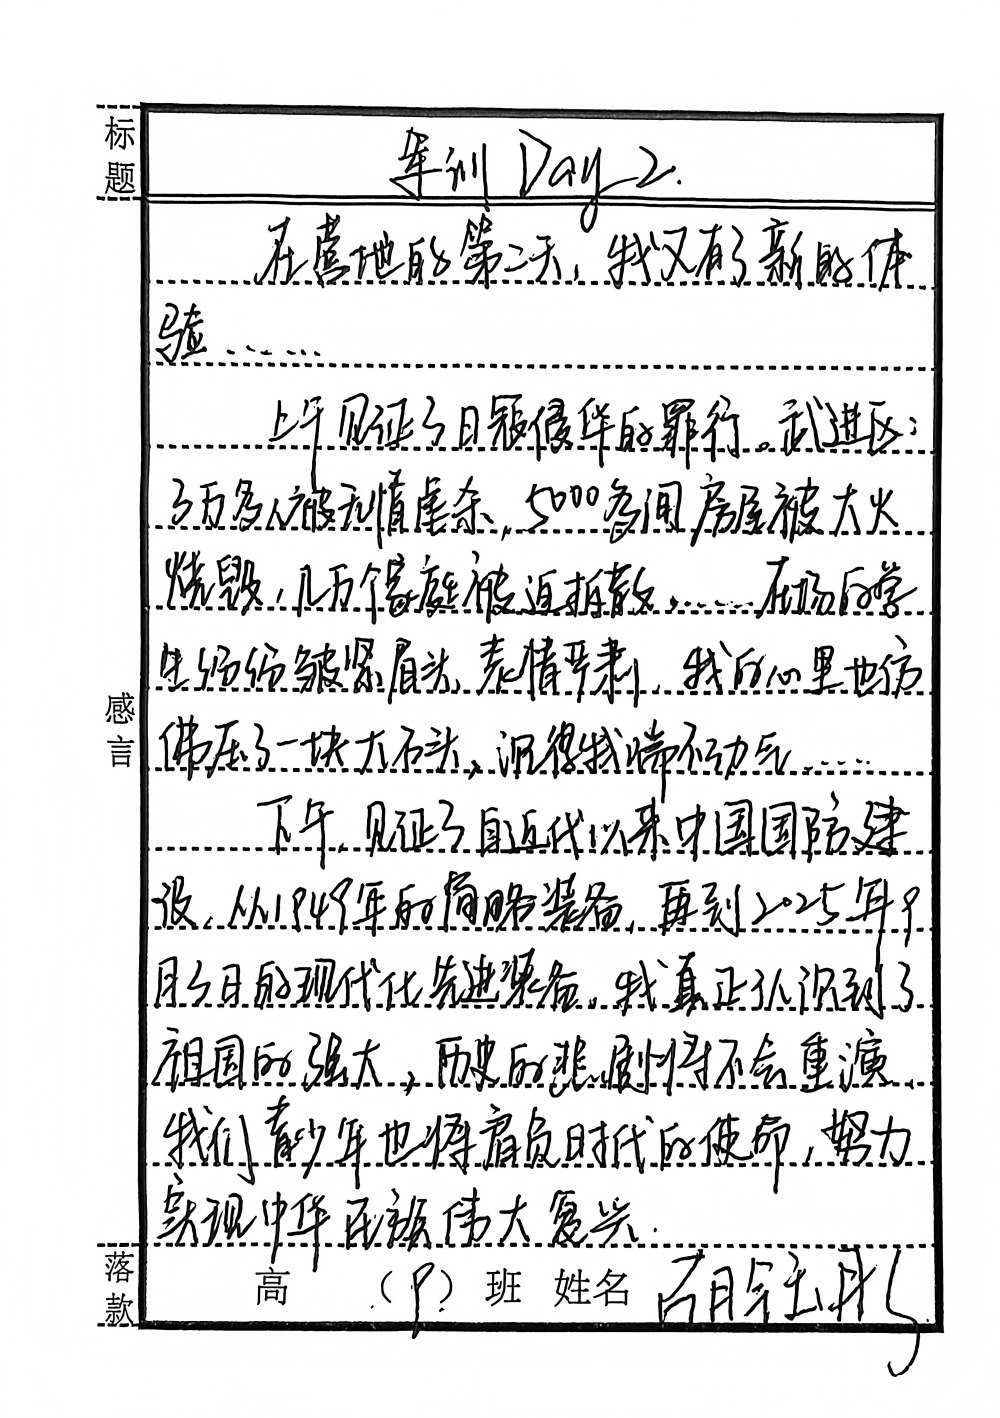 标题
军训 Day 2.
在营地的第二天，我又有了新的体
验……
上午见证了日寇侵华的罪行。武进区：
3万多人被无情虐杀，5000多间房屋被大火
烧毁，几万个家庭被迫拆散，……在场的学
生纷纷皱紧眉头，表情严肃，我的心里也仿
佛压了一块大石头，沉得我喘不动气……
下午，见证了自近代以来中国国防建
设，从1949年的简略装备，再到2025年9
月3日的现代化先进装备，我真正认识到了
祖国的强大，历史的悲剧将不会重演，
我们青少年也将肩负时代的使命，努力
实现中华民族伟大复兴.
感言
落款
高 （9）班 姓名 胡